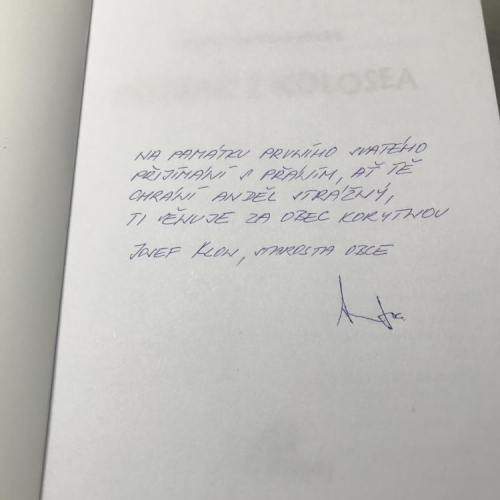 NA PAMÁTKU PRVNÍHO SVATÉHO
PŘIJÍMÁNÍ S PŘÁNÍM, AŤ TĚ
CHRÁNÍ ANDĚL STRÁŽNÝ,
TI VĚNUJE ZA OBEC KORYTNOU
JOSEF KLON, STAROSTA OBCE
Z KOLOSEA